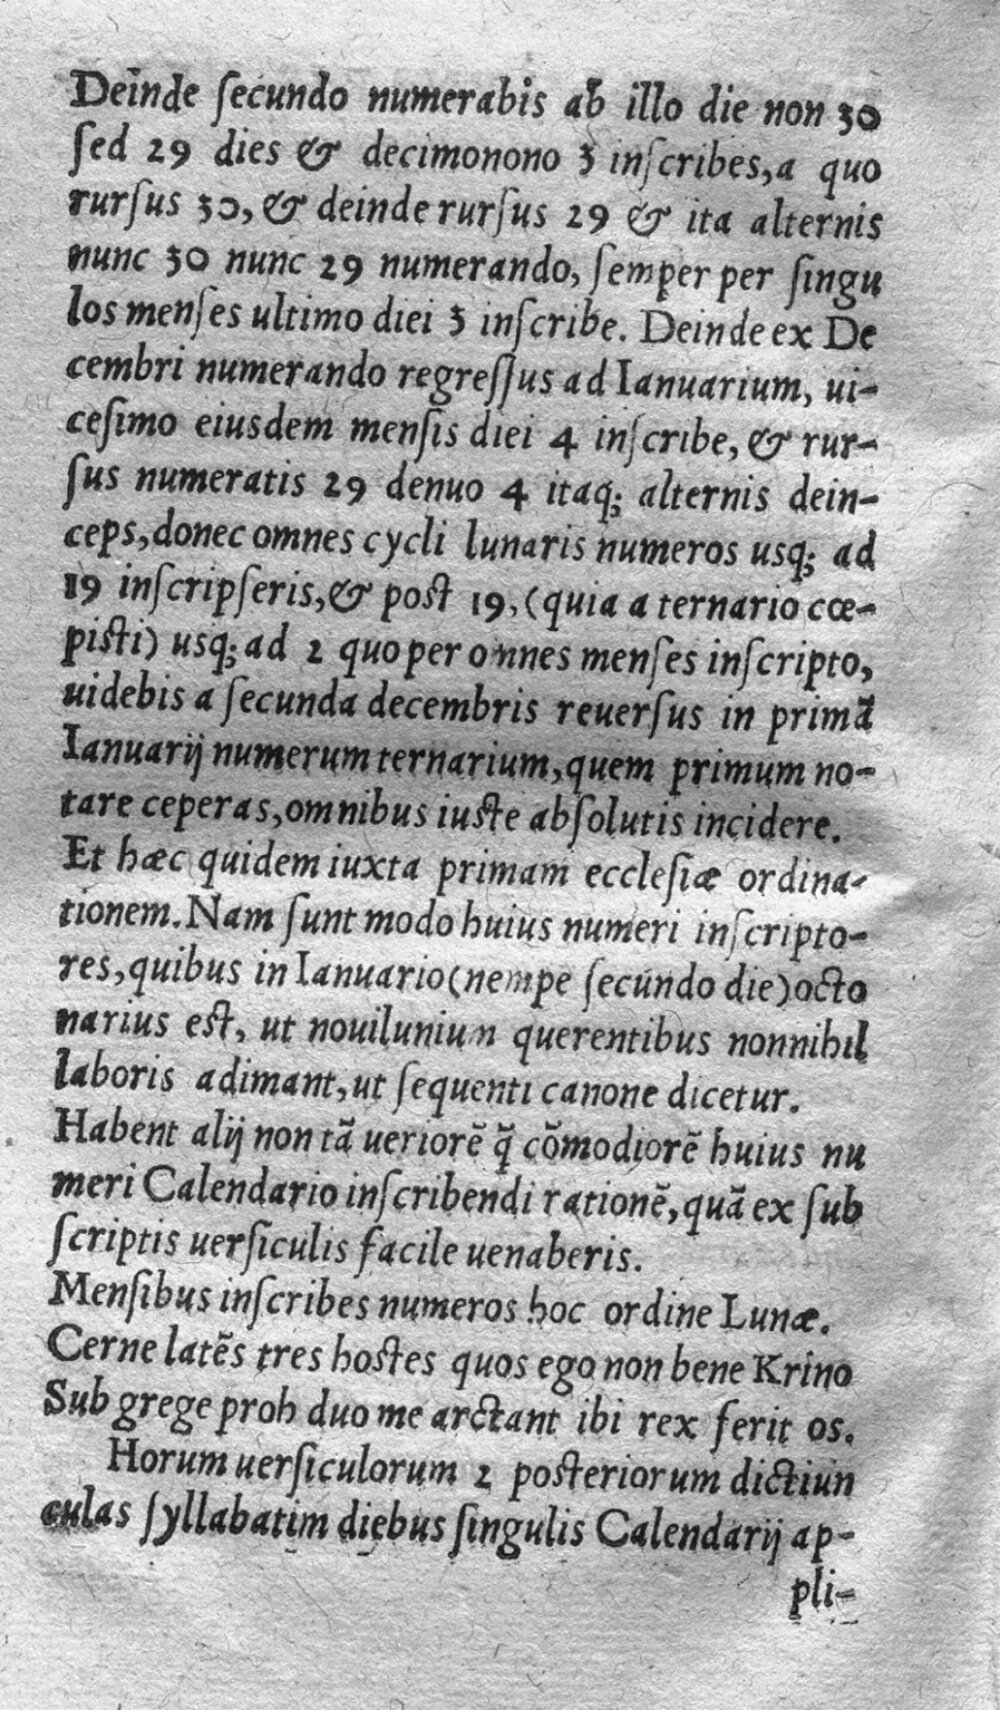 Deinde ſecundo numerabis ab illo die non 30
ſed 29 dies & decimonono 3 inſcribes, a quo
rurſus 30, & deinde rurſus 29 & ita alternis
nunc 30 nunc 29 numerando, ſemper per ſingu
los menſes ultimo diei 3 inſcribe. Deinde ex De
cembri numerando regreſſus ad Ianuarium, ui-
ceſimo eiusdem menſis diei 4 inſcribe, & rur-
ſus numeratis 29 denuo 4 itaq; alternis dein-
ceps, donec omnes cycli lunaris numeros usq; ad
19 inſcripſeris, & post 19, (quia a ternario cœ-
pisti) usq; ad 2 quo per omnes menſes inſcripto,
uidebis a ſecunda decembris reuerſus in primã
Ianuarij numerum ternarium, quem primum no-
tare ceperas, omnibus iuste abſolutis incidere.
Et hæc quidem iuxta primam eccleſiæ ordina-
tionem. Nam ſunt modo huius numeri inſcripto-
res, quibus in Ianuario (nempe ſecundo die) octo
narius est, ut nouilunium querentibus nonnihil
laboris adimant, ut ſequenti canone dicetur.
Habent alij non tã ueriorẽ q̃ cõmodiorẽ huius nu
meri Calendario inſcribendi rationẽ, quã ex ſub
ſcriptis uerſiculis facile uenaberis.
Menſibus inſcribes numeros hoc ordine Lunæ.
Cerne latẽs tres hostes quos ego non bene Krino
Sub grege proh duo me arctant ibi rex ferit os.
Horum uerſiculorum 2 posteriorum dictiun
culas ſyllabatim diebus ſingulis Calendarij ap-
pli-